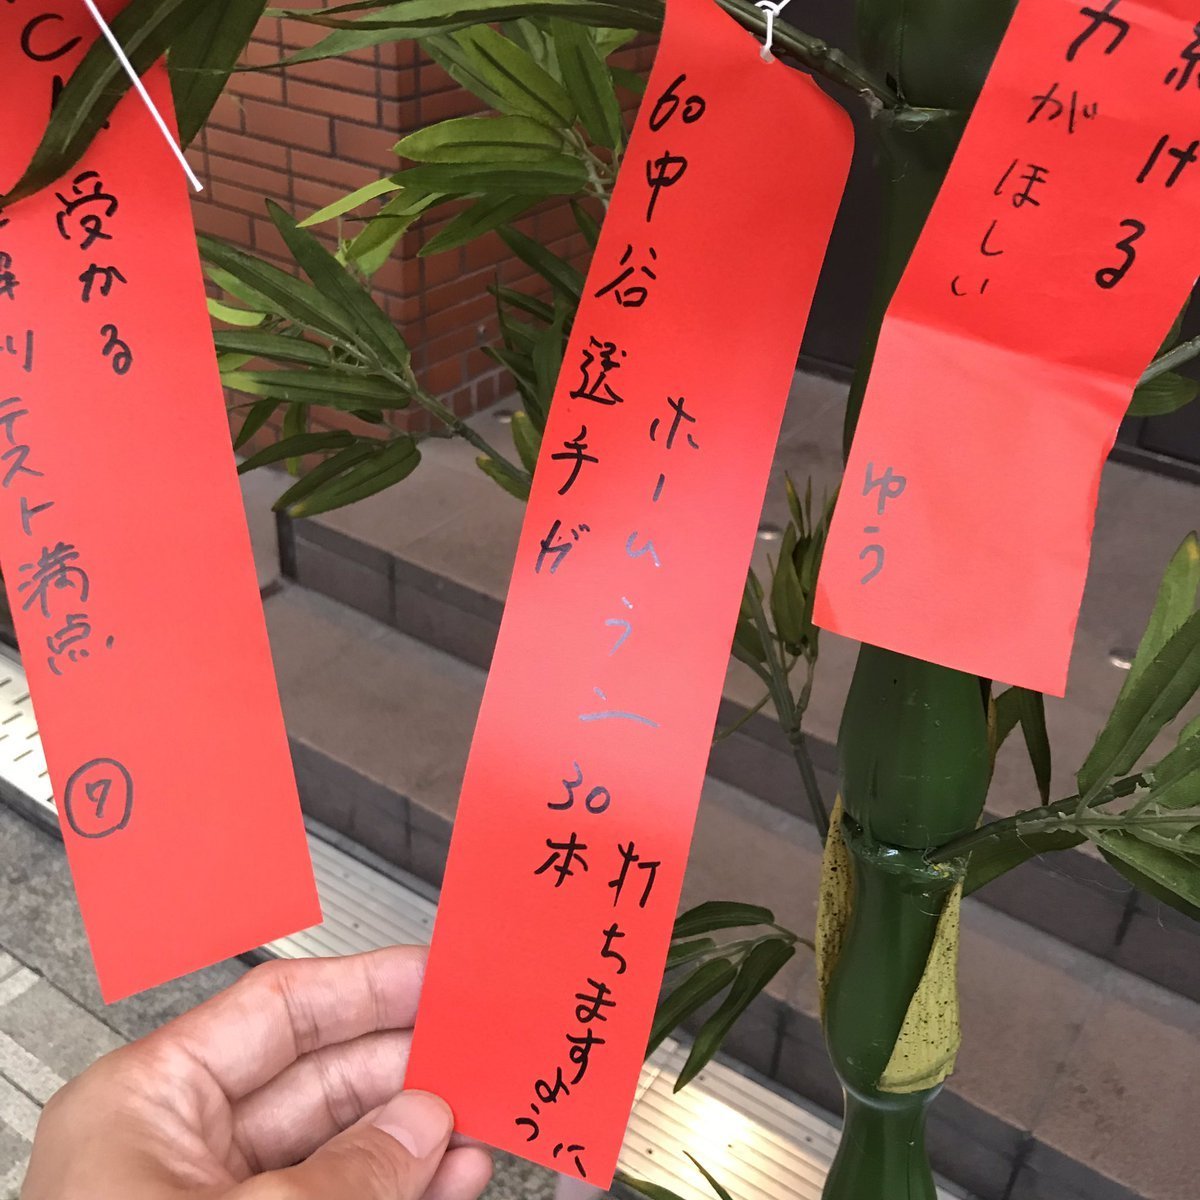 ける
力がほしい
ゆう
60中谷選手が
ホームラン
30本
打ちますように
受かる
テスト満点